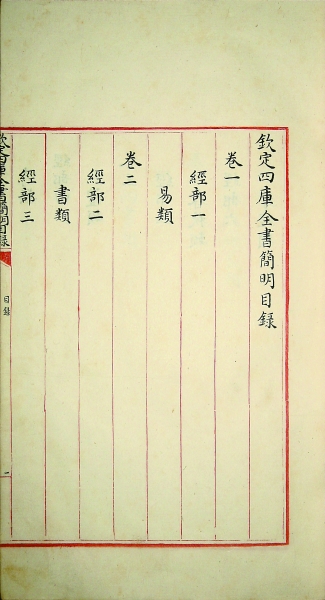 欽定四庫全書簡明目錄
卷一
經部一
易類
卷二
經部二
書類
經部三
欽定四庫全書簡明目錄
目錄
一